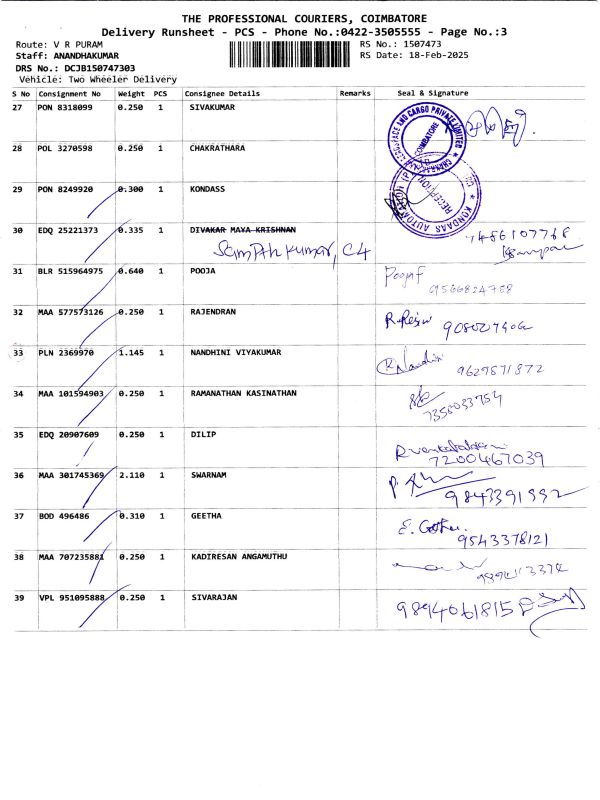 THE PROFESSIONAL COURIERS, COIMBATORE
Delivery Runsheet - PCS - Phone No.:0422-3505555 - Page No.:3
Route: V R PURAM
RS No.: 1507473
Staff: ANANDHAKUMAR
RS Date: 18-Feb-2025
DRS No.: DCJB150747303
Vehicle: Two Wheeler Delivery
S No Consignment No Weight PCS Consignee Details Remarks Seal & Signature
27 PON 8318099 0.250 1 SIVAKUMAR
28 POL 3270598 0.250 1 CHAKRATHARA
COIMBATORE
29 PON 8249920 0.300 1 KONDASS
RECEPTION
30 EDQ 25221373 0.335 1 DIVAKAR MAYA KRISHNAN
7486107768
Sampath Kumar, C4
31 BLR 515964975 0.640 1 POOJA
Pooja
9566824788
32 MAA 577573126 0.250 1 RAJENDRAN
33 PLN 2369970 1.145 1 NANDHINI VIYAKUMAR
9627871872
34 MAA 101594903 0.250 1 RAMANATHAN KASINATHAN
7358033754
35 EDQ 20907609 0.250 1 DILIP
7200467039
36 MAA 301745369 2.110 1 SWARNAM
37 BOD 496486 0.310 1 GEETHA
9543378121
38 MAA 707235881 0.250 1 KADIRESAN ANGAMUTHU
39 VPL 951095888 0.250 1 SIVARAJAN
9894061815